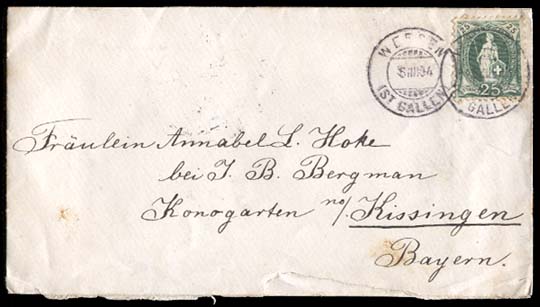 25 25
WEESEN
8.III.94
(ST GALLEN)
25
GALLEN
Fräulein Annabel L. Hoke
bei J. B. Bergman
Konogarten no/. Kissingen
Bayern.